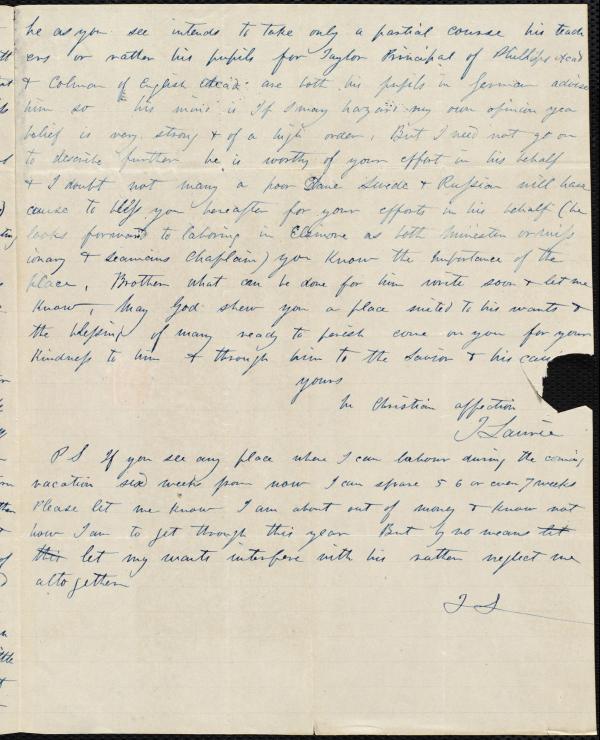 he as you see intends to take only a partial course his teach
ers or rather his pupils for Taylor Principal of Phillips Acad
& Colman of English Acad. are both his pupils in German advise
him so his mind is if I may hazard my own opinion yea
belief is very strong & of a high order. But I need not go on
to describe further he is worthy of your effort in his behalf
& I doubt not many a poor Dane Swede & Russian will have
cause to bless you hereafter for your efforts in his behalf (he
looks forward to laboring in as both minister or miss
ionary & seamans Chaplain) you know the importance of the
place, Brother what can be done for him write soon & let me
know, may God shew you a place suited to his wants &
the blessing of many ready to perish come on you for your
kindness to him & through him to the Savior & his
yours
In Christian affection
P S If you see any place where I can labour during the coming
vacation six weeks from now I can spare 5 6 or even 7 weeks
Please let me know I am about out of money & know not
how I am to get through this year But by no means let
this let my wants interfere with his rather neglect me
altogether